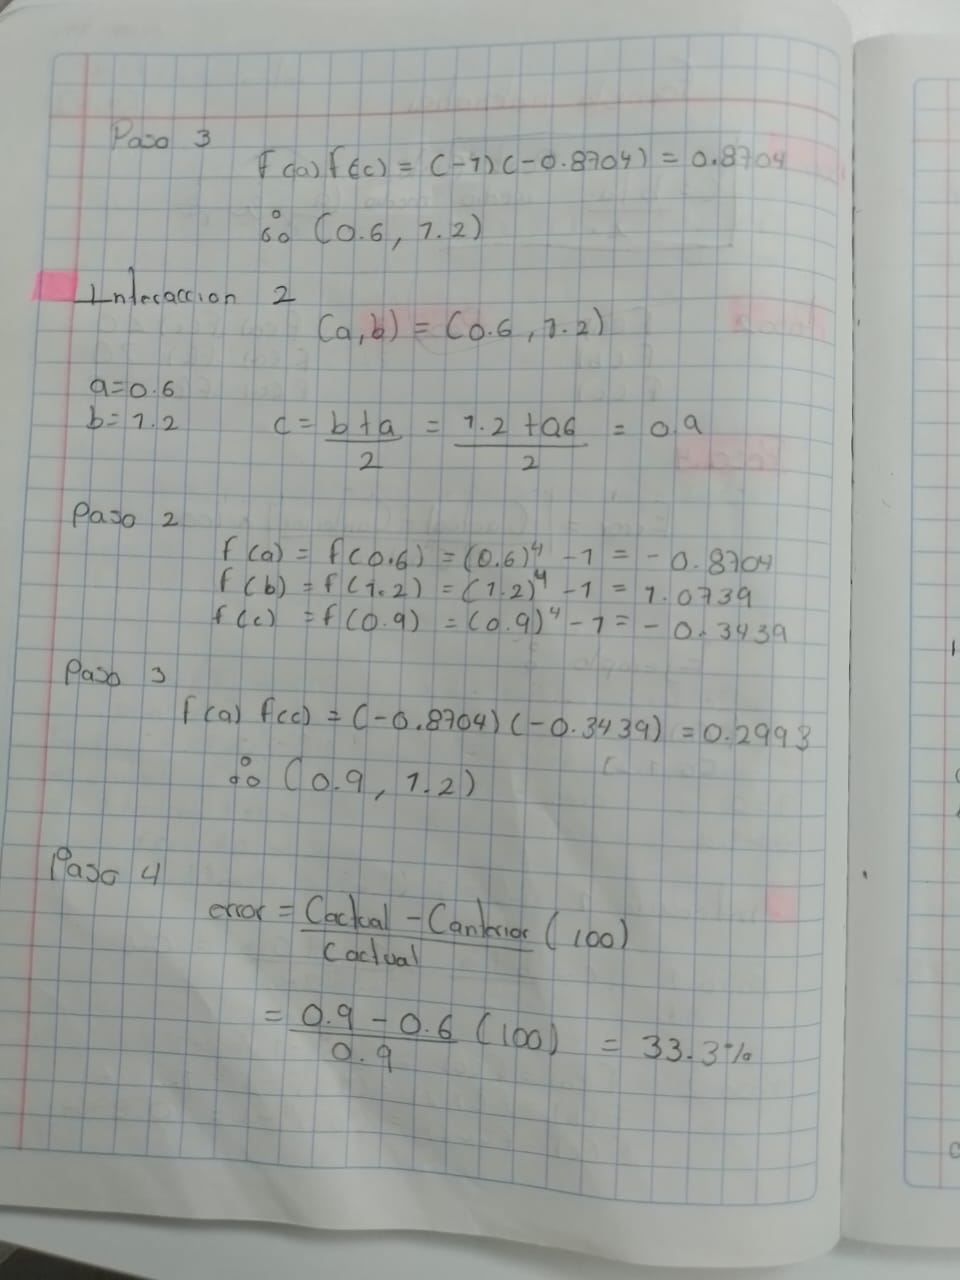 Paso 3
f(a) f(c) = (-1)(-0.8704) = 0.8704
∴ (0.6, 1.2)
Interaccion 2
(a,b) = (0.6, 1.2)
a=0.6
b=1.2 c = b+a/2 = 1.2+0.6/2 = 0.9
Paso 2
f(a) = f(0.6) = (0.6)⁴ -1 = -0.8704
f(b) = f(1.2) = (1.2)⁴ -1 = 1.0739
f(c) = f(0.9) = (0.9)⁴ -1 = -0.3439
Paso 3
f(a) f(c) = (-0.8704)(-0.3439) = 0.2993
∴ (0.9, 1.2)
Paso 4
error = Cactual - Canterior/Cactual (100)
= 0.9 - 0.6/0.9 (100) = 33.3%